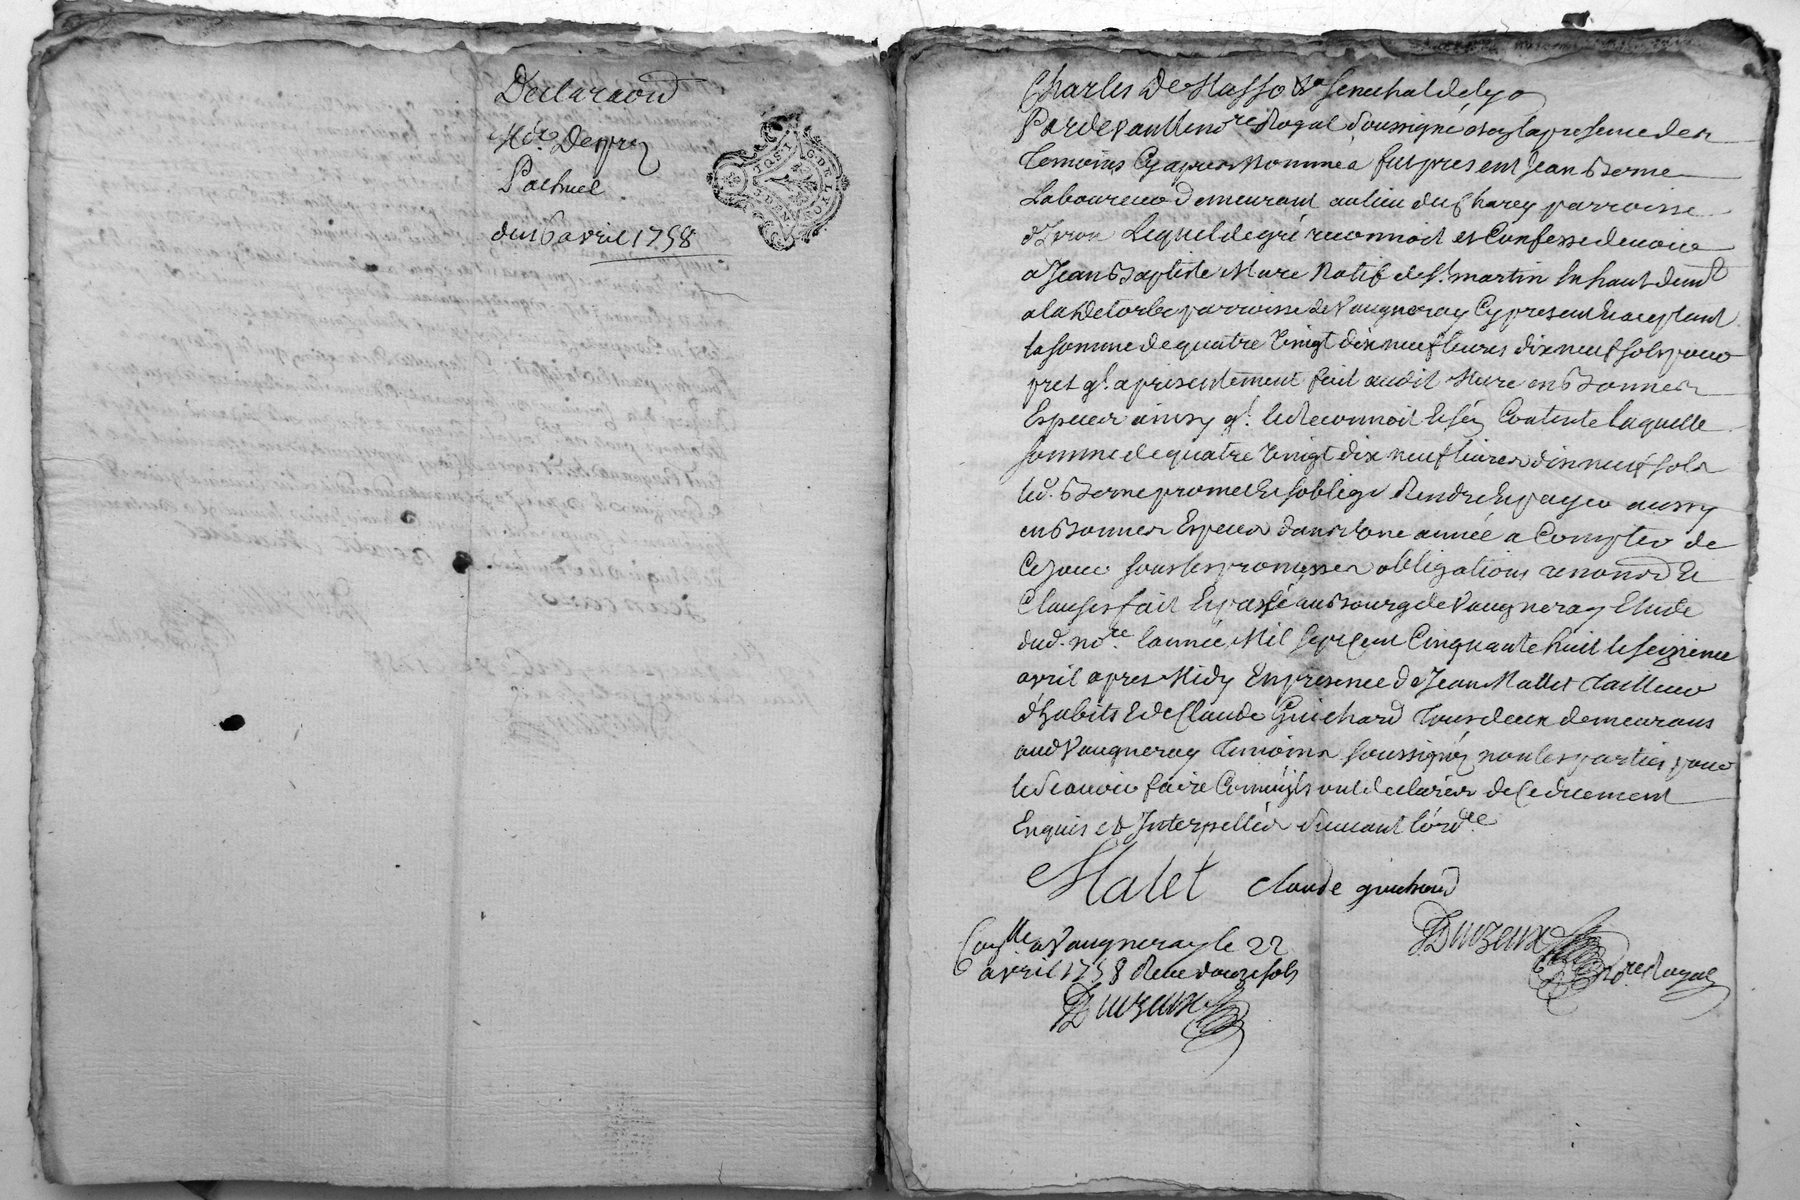 Declaraõn
Mre Desprez
Pachuel
du 16 avril 1758
G.DE LYON
Charles De Masso &a Senechal de Lyo
Pardevant Le no.re Royal soussigné et en la presence des
temoins Cy apres Nommés fut present Jean Berne
Laboureur demeurant au lieu du Charey parroisse
d'Yvon Lequel de gré reconnoit et Confesse devoir
a Jean Baptiste Mure Natif de St. martin En haut demt
a la Detorbe parroisse de Vaugneray Cy present Et aceptant
la somme de quatre Vingt dix neuf livres dix neuf sols pour
pret ql. a presentement fait audit Mure en Bonnes
Especes ainsy ql. le Reconnoit Et s'en Contente laquelle
somme de quatre Vingt dix neuf livres dix neuf sols
led. Berne promet Et soblige Rendre Et payer aussy
en Bonnes Especes dans Une année a Compter de
Ce jour sous les promesses obligations renonõns Et
Clauses fait Et passé au Bourg de Vaugneray Etude
dud. no.re lannée Mil sept Cent Cinquante huit le seizieme
avril apres Midy En presence de Jean Mallet tailleur
d'habits Et de Claude Guichard tous deux demeurans
aud Vaugneray temoins soussignés non les parties pour
ne sçavoir faire Comme ils ont declarés de Ce duement
Enquis et Interpellés suivant l'ord.ce
Malet claude guichard
Duvzeux
no.re Royal
Con.llé a Vaugneray le 22
avril 1758 Reçu douze sols
Duvzeux